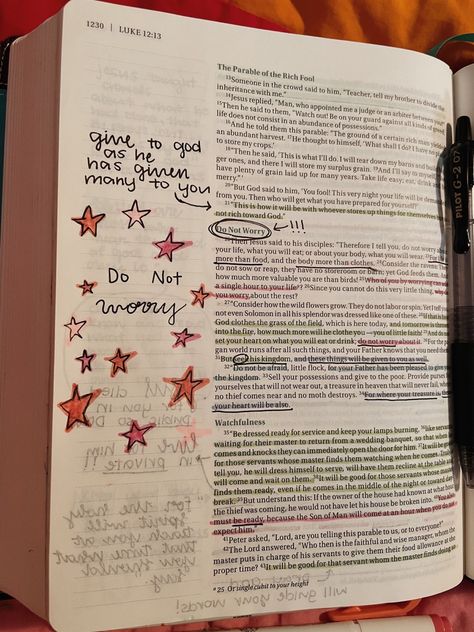 1230 | LUKE 12:13
give to god
as he
has given
many to you
Do Not
worry
!!!
The Parable of the Rich Fool
13Someone in the crowd said to him, "Teacher, tell my brother to divide the
inheritance with me."
14Jesus replied, "Man, who appointed me a judge or an arbiter between you?"
15Then he said to them, "Watch out! Be on your guard against all kinds of greed;
life does not consist in an abundance of possessions."
16And he told them this parable: "The ground of a certain rich man yielded
an abundant harvest. 17He thought to himself, 'What shall I do? I have no place
to store my crops.'
18"Then he said, 'This is what I'll do. I will tear down my barns and build
ger ones, and there I will store my surplus grain. 19And I'll say to myself,
have plenty of grain laid up for many years. Take life easy; eat, drink and
merry." '
20"But God said to him, 'You fool! This very night your life will be demanded
from you. Then who will get what you have prepared for yourself?'
21"This is how it will be with whoever stores up things for themselves
not rich toward God."
Do Not Worry
22Then Jesus said to his disciples: "Therefore I tell you, do not worry about
your life, what you will eat; or about your body, what you will wear. 23For
more than food, and the body more than clothes. 24Consider the ravens: They
do not sow or reap, they have no storeroom or barn; yet God feeds them.
how much more valuable you are than birds! 25Who of you by worrying can add
a single hour to your life? 26Since you cannot do this very little thing, why do
you worry about the rest?
27"Consider how the wild flowers grow. They do not labor or spin. Yet I tell you,
not even Solomon in all his splendor was dressed like one of these. 28If that is how
God clothes the grass of the field, which is here today, and tomorrow is thrown
into the fire, how much more will he clothe you—you of little faith! 29And do not
set your heart on what you will eat or drink; do not worry about it. 30For the
gan world runs after all such things, and your Father knows that you need
31But seek his kingdom, and these things will be given to you as well.
32"Do not be afraid, little flock, for your Father has been pleased to give you
the kingdom. 33Sell your possessions and give to the poor. Provide purses for
yourselves that will not wear out, a treasure in heaven that will never fail, where
no thief comes near and no moth destroys. 34For where your treasure is, there
your heart will be also.
Watchfulness
35"Be dressed ready for service and keep your lamps burning, 36like servants
waiting for their master to return from a wedding banquet, so that when he
comes and knocks they can immediately open the door for him. 37It will be good
for those servants whose master finds them watching when he comes. Truly I
tell you, he will dress himself to serve, will have them recline at the table and
will come and wait on them. 38It will be good for those servants whose master
finds them ready, even if he comes in the middle of the night or toward day-
break. 39But understand this: If the owner of the house had known at what hour
the thief was coming, he would not have let his house be broken into. 40You also
must be ready, because the Son of Man will come at an hour when you do not
expect him."
41Peter asked, "Lord, are you telling this parable to us, or to everyone?"
42The Lord answered, "Who then is the faithful and wise manager, whom the
master puts in charge of his servants to give them their food allowance at the
proper time? 43It will be good for that servant whom the master finds doing so
a 25 Or single cubit to your height
PILOT G-2